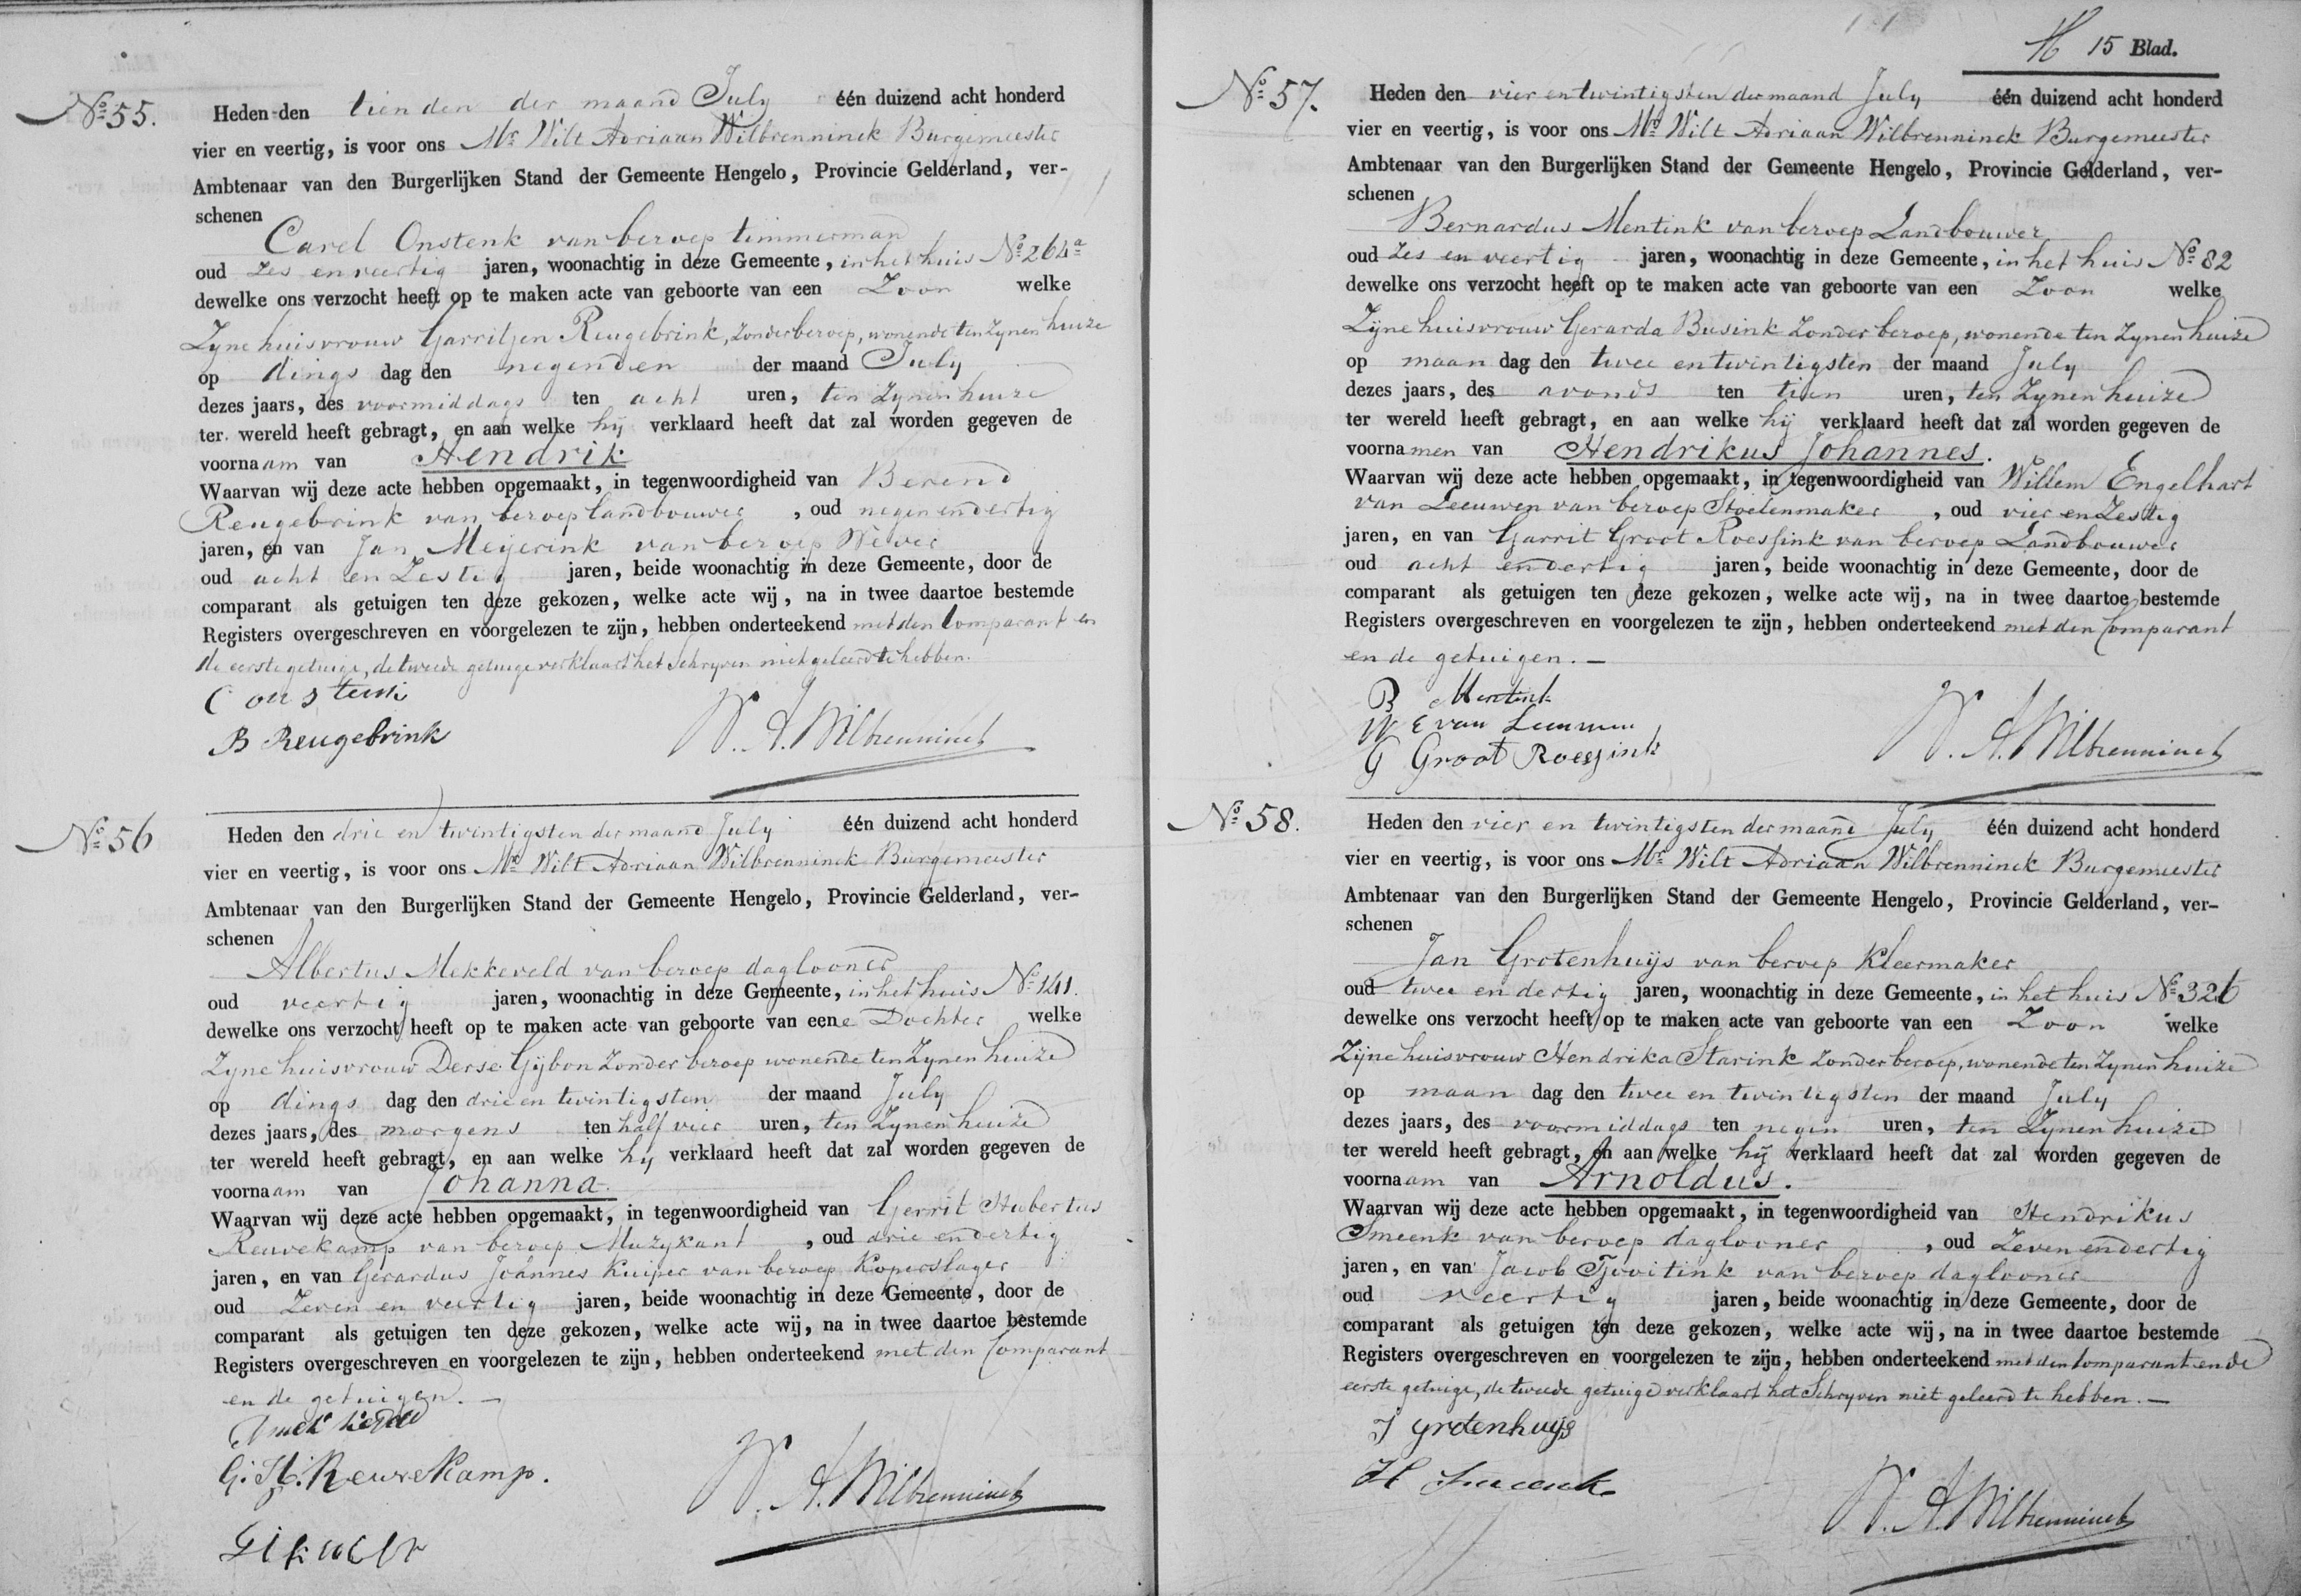 No 55.
Heden den tienden der maand July één duizend acht honderd
vier en veertig, is voor ons Mr Wilt Adriaan Wilbrenninck Burgemeester
Ambtenaar van den Burgerlijken Stand der Gemeente Hengelo, Provincie Gelderland, ver-
schenen
Carel Onstenk van beroep timmerman
oud zes en veertig jaren, woonachtig in deze Gemeente, in het huis No 264a
dewelke ons verzocht heeft op te maken acte van geboorte van een Zoon welke
Zyne huisvrouw Garritjen Reugebrink, zonder beroep, wonende ten zynen huize
op dings dag den negenden der maand July
dezes jaars, des voormiddags ten acht uren, ten zynen huize
ter wereld heeft gebragt, en aan welke hij verklaard heeft dat zal worden gegeven de
voornaam van Hendrik
Waarvan wij deze acte hebben opgemaakt, in tegenwoordigheid van Berend
Reugebrink van beroep landbouwer, oud negen en dertig
jaren, en van Jan Meyerink van beroep Wever
oud acht en Zestig jaren, beide woonachtig in deze Gemeente, door de
comparant als getuigen ten deze gekozen, welke acte wij, na in twee daartoe bestemde
Registers overgeschreven en voorgelezen te zijn, hebben onderteekend met den Comparant en
de eerste getuige, de tweede getuige verklaart het Schryven niet geleerd te hebben.
C onstenk
B Reugebrink
W. A. Wilbrenninck
No 56
Heden den drie en twintigsten der maand July één duizend acht honderd
vier en veertig, is voor ons Mr Wilt Adriaan Wilbrenninck Burgemeester
Ambtenaar van den Burgerlijken Stand der Gemeente Hengelo, Provincie Gelderland, ver-
schenen
Albertus Mekkeveld van beroep daglooner
oud veertig jaren, woonachtig in deze Gemeente, in het huis No 141.
dewelke ons verzocht heeft op te maken acte van geboorte van eene Dochter welke
Zyne huisvrouw Derse Gybon Zonder beroep wonende ten Zynen huize
op dings dag den drie en twintigsten der maand July
dezes jaars, des morgens ten half vier uren, ten Zynen huize
ter wereld heeft gebragt, en aan welke hy verklaard heeft dat zal worden gegeven de
voornaam van Johanna.
Waarvan wij deze acte hebben opgemaakt, in tegenwoordigheid van Gerrit Hubertus
Reuvekamp van beroep Muzykant, oud drie en dertig
jaren, en van Gerardus Joánnes Kuiper van beroep Koperslager
oud Zeven en veertig jaren, beide woonachtig in deze Gemeente, door de
comparant als getuigen ten deze gekozen, welke acte wij, na in twee daartoe bestemde
Registers overgeschreven en voorgelezen te zijn, hebben onderteekend met den Comparant
en de getuigen. —
G. H. Reuvekamp.
W. A. Wilbrenninck
15 Blad.
No 57.
Heden den vier en twintigsten der maand July één duizend acht honderd
vier en veertig, is voor ons Mr Wilt Adriaan Wilbrenninck Burgemeester
Ambtenaar van den Burgerlijken Stand der Gemeente Hengelo, Provincie Gelderland, ver-
schenen
Bernardus Mentink van beroep Landbouwer
oud zes en veertig jaren, woonachtig in deze Gemeente, in het huis No 82
dewelke ons verzocht heeft op te maken acte van geboorte van een Zoon welke
Zijne huisvrouw Gerarda Busink Zonder beroep, wonende ten Zynen huize
op maan dag den twee en twintigsten der maand July
dezes jaars, des avonds ten tien uren, ten Zynen huize
ter wereld heeft gebragt, en aan welke hij verklaard heeft dat zal worden gegeven de
voornamen van Hendrikus Johannes.
Waarvan wij deze acte hebben opgemaakt, in tegenwoordigheid van Willem Engelhart
van Leeuwen van beroep Stoelenmaker, oud vier en Zestig
jaren, en van Garrit Groot Roessink van beroep Landbouwer
oud acht en dertig jaren, beide woonachtig in deze Gemeente, door de
comparant als getuigen ten deze gekozen, welke acte wij, na in twee daartoe bestemde
Registers overgeschreven en voorgelezen te zijn, hebben onderteekend met den Comparant
en de getuigen. —
B Mentink
W E van Leeuwen
G Groot Roessink
W. A. Wilbrenninck
No 58.
Heden den vier en twintigsten der maand July één duizend acht honderd
vier en veertig, is voor ons Mr Wilt Adriaan Wilbrenninck Burgemeester
Ambtenaar van den Burgerlijken Stand der Gemeente Hengelo, Provincie Gelderland, ver-
schenen
Jan Grotenhuys van beroep Kleermaker
oud twee en dertig jaren, woonachtig in deze Gemeente, in het huis No 326
dewelke ons verzocht heeft op te maken acte van geboorte van een Zoon welke
Zijne huisvrouw Hendrika Starink Zonder beroep, wonende ten Zynen huize
op maan dag den twee en twintigsten der maand July
dezes jaars, des voormiddags ten negen uren, ten Zynen huize
ter wereld heeft gebragt, en aan welke hij verklaard heeft dat zal worden gegeven de
voornaam van Arnoldus.
Waarvan wij deze acte hebben opgemaakt, in tegenwoordigheid van Hendrikus
Smeenk van beroep daglooner, oud Zeven en dertig
jaren, en van Jacob Tjooitink van beroep daglooner
oud veertig jaren, beide woonachtig in deze Gemeente, door de
comparant als getuigen ten deze gekozen, welke acte wij, na in twee daartoe bestemde
Registers overgeschreven en voorgelezen te zijn, hebben onderteekend met den Comparant en de
eerste getuige, de tweede getuige verklaart het Schryven niet geleerd te hebben. —
J grotenhuys
H Smeenk
W. A. Wilbrenninck